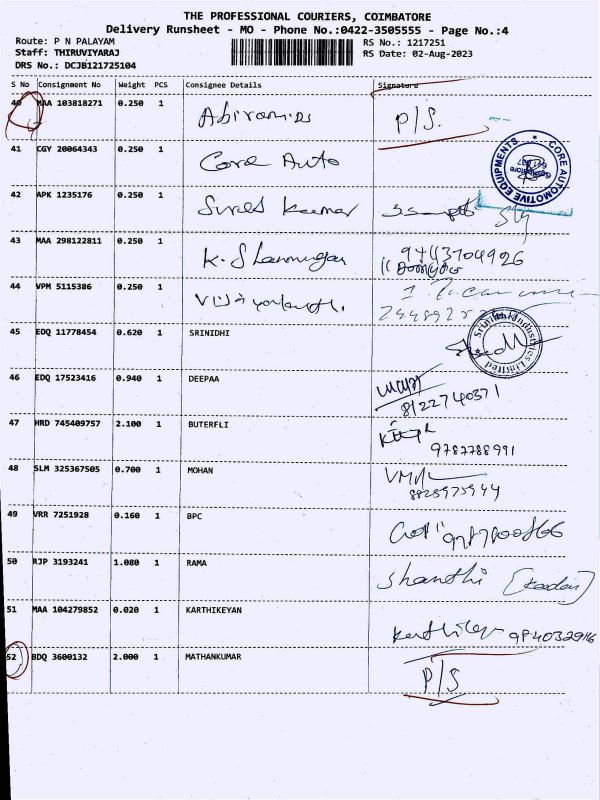 THE PROFESSIONAL COURIERS, COIMBATORE
Delivery Runsheet - MO - Phone No.:0422-3505555 - Page No.:4
Route: P N PALAYAM
Staff: THIRUVIYARAJ
DRS No.: DCJB121725104
RS No.: 1217251
RS Date: 02-Aug-2023
S No Consignment No Weight PCS Consignee Details Signature
40 MAA 103818271 0.250 1 Abirami P/S.
41 CGY 20064343 0.250 1 Core Auto
CORE AUTOMOTIVE EQUIPMENTS
42 APK 1235176 0.250 1 Sures Kumar
43 MAA 298122811 0.250 1 K. Shanmugan 9443704926
44 VPM 5115386 0.250 1
45 EDQ 11778454 0.620 1 SRINIDHI
Industries Limited
46 EDQ 17523416 0.940 1 DEEPAA
8122740371
47 HRD 745409757 2.100 1 BUTERFLI
9787788991
48 SLM 325367505 0.700 1 MOHAN
8825975944
49 VRR 7251928 0.160 1 BPC
50 RJP 3193241 1.080 1 RAMA Shanthi
51 MAA 104279852 0.020 1 KARTHIKEYAN
9840032916
52 BDQ 3600132 2.000 1 MATHANKUMAR P/S